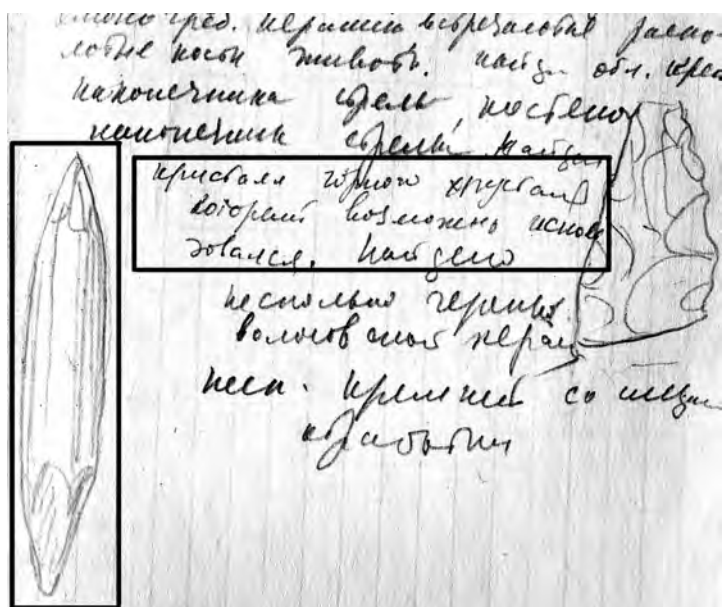 керамики встречаются
кости живот. найден обл. крем
наконечника стрелы, костено
наконечник стрелы. Найден
кристалл горного хрусталя
который возможно исполь
зовался. Найдено
несколько черепков
волосовской керам
неск. кремней со следам
обработки